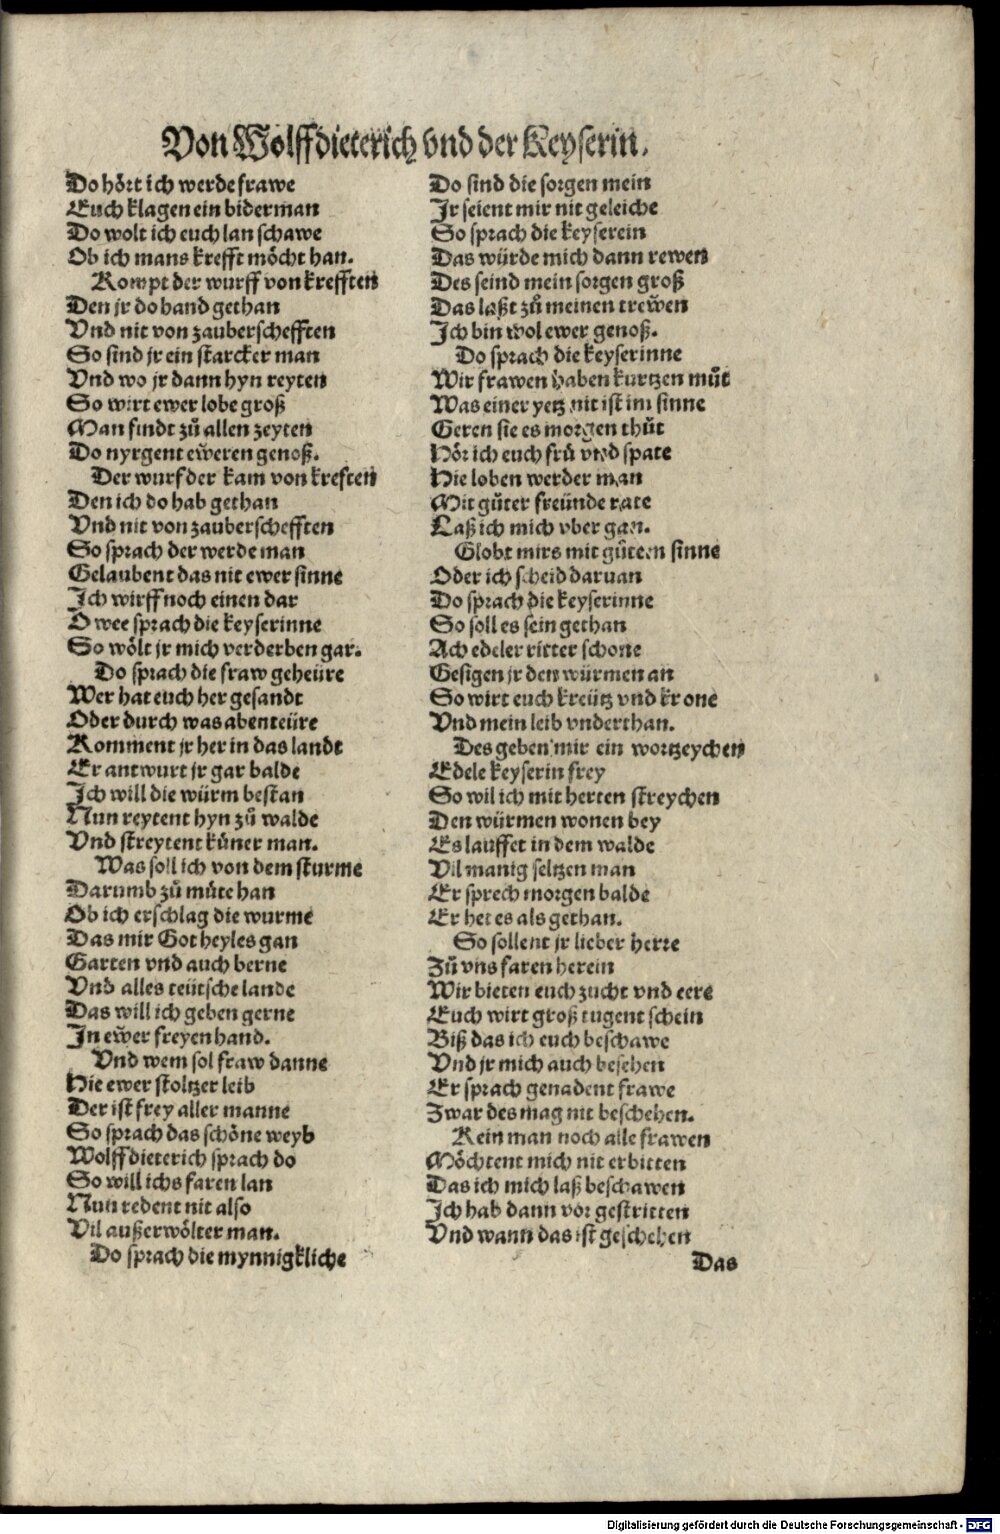 Von Wolffdieterich vnd der Keyserin.
Do hört ich werde frawe
Euch klagen ein biderman
Do wolt ich euch lan schawe
Ob ich mans krefft möcht han.
Kompt der wurff von krefften
Den jr do hand gethan
Vnd nit von zauberschefften
So sind jr ein starcker man
Vnd wo jr dann hyn reyten
So wirt ewer lobe groß
Man findt zů allen zeyten
Do nyrgent eẅeren genoß.
Der wurf der kam von kreften
Den ich do hab gethan
Vnd nit von zauberschefften
So sprach der werde man
Gelaubent das nit ewer sinne
Ich wirff noch einen dar
O wee sprach die keyserinne
So wölt jr mich verderben gar.
Do sprach die fraw geheüre
Wer hat euch her gesandt
Oder durch was abenteüre
Komment jr her in das landt
Er antwurt jr gar balde
Ich will die würm bestan
Nun reytent hyn zů walde
Vnd streytent küner man.
Was soll ich von dem sturme
Darumb zů můte han
Ob ich erschlag die wurme
Das mir Got heyles gan
Garten vnd auch berne
Vnd alles teütsche lande
Das will ich geben gerne
In eẅer freyen hand.
Vnd wem sol fraw danne
Hie ewer stoltzer leib
Der ist frey aller manne
So sprach das schöne weyb
Wolffdieterich sprach do
So will ichs faren lan
Nun redent nit also
Vil außerwölter man.
Do sprach die mynnigkliche
Do sind die sorgen mein
Ir seient mir nit geleiche
So sprach die keyserein
Das würde mich dann rewen
Des seind mein sorgen groß
Das laßt zů meinen treẅen
Ich bin wol ewer genoß.
Do sprach die keyserinne
Wir frawen haben kurtzen můt
Was einer yetz nit ist im sinne
Geren sie es morgen thůt
Hör ich euch frü vnd spate
Hie loben werder man
Mit gůter freünde rate
Laß ich mich vber gan.
Globt mirs mit gůtem sinne
Oder ich scheid daruan
Do sprach die keyserinne
So soll es sein gethan
Ach edeler ritter schone
Gesigen jr den würmen an
So wirt euch kreütz vnd krone
Vnd mein leib vnderthan.
Des geben mir ein wortzeychen
Edele keyserin frey
So wil ich mit herten streychen
Den würmen wonen bey
Es lauffet in dem walde
Vil manig seltzen man
Er sprech morgen balde
Er het es als gethan.
So sollent jr lieber herre
Zů vns faren herein
Wir bieten euch zucht vnd eere
Euch wirt groß tugent schein
Biß das ich euch beschawe
Vnd jr mich auch besehen
Er sprach genadent frawe
Zwar des mag nit beschehen.
Kein man noch alle frawen
Möchtent mich nit erbitten
Das ich mich laß beschawen
Ich hab dann vor gestritten
Vnd wann das ist geschehen
Das
Digitalisierung gefördert durch die Deutsche Forschungsgemeinschaft - DFG